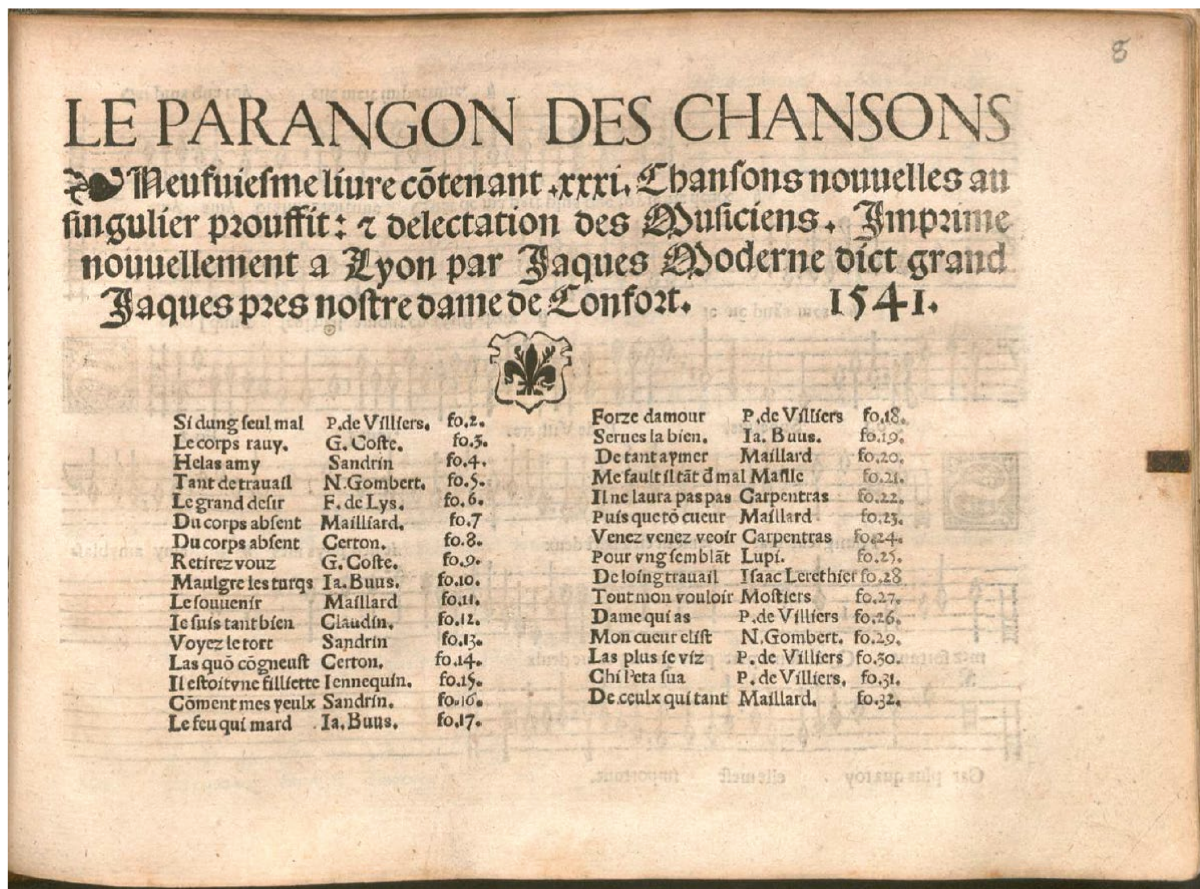 8
LE PARANGON DES CHANSONS
Neufuiesme liure cōtenant .xxxi. Chansons nouuelles au
singulier prouffit: ⁊ delectation des Musiciens. Imprime
nouuellement a Lyon par Jaques Moderne dict grand
Jaques pres nostre dame de Confort. 1541.
Si dung seul mal P. de Villiers. fo.2.
Le corps rauy. G. Coste. fo.3.
Helas amy Sandrin fo.4.
Tant de trauail N. Gombert. fo.5.
Le grand desir F. de Lys. fo.6.
Du corps absent Mailliard. fo.7
Du corps absent Certon. fo.8.
Retirez vouz G. Coste. fo.9.
Maulgre les turqs Ia. Buus. fo.10.
Le souuenir Maillard fo.11.
Ie suis tant bien Claudin. fo.12.
Voyez le tort Sandrin fo.13.
Las quō cōgneust Certon. fo.14.
Il estoit vne filliette Iennequin. fo.15.
Cōment mes yeulx Sandrin. fo.16.
Le feu qui mard Ia. Buus. fo.17.
Forze damour P. de Villiers fo.18.
Serues la bien. Ia. Buus. fo.19.
De tant aymer Maillard fo.20.
Me fault il tāt d̄ mal Maille fo.21.
Il ne laura pas pas Carpentras fo.22.
Puis que tō cueur Maillard fo.23.
Venez venez veoir Carpentras fo.24.
Pour vng semblāt Lupi. fo.25.
De loing trauail Isaac Lerethier fo.28
Tout mon vouloir Mostiers fo.27.
Dame qui as P. de Villiers fo.26.
Mon cueur elist N. Gombert. fo.29.
Las plus ie viz P. de Villiers fo.30.
Chi l'eta sua P. de Villiers. fo.31.
De ceulx qui tant Maillard. fo.32.